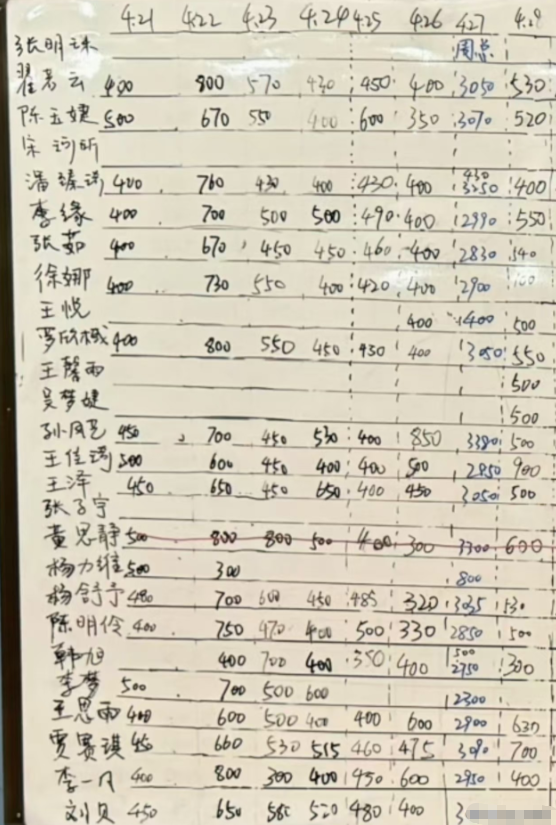 4.21 4.22 4.23 4.24 4.25 4.26 4.27 4.28
张明珠 周总
翟若云 400 800 570 430 450 400 3050 530
陈玉婕 500 670 550 400 600 350 3070 520
宋诃昕
潘臻涛 400 760 430 400 430 400 430 3250 400
李缘 400 700 500 500 490 400 2990 550
张茹 400 670 450 450 460 400 2830 540
徐娜 400 730 550 400 420 400 2900
王悦 400 400 500
罗欣棫 400 800 550 450 450 400 3050 550
王馨雨 500
吴梦婕 500
孙凤艺 450 700 450 530 400 850 3380 500
王佳琦 500 600 450 400 400 500 2850 900
王泽 450 650 450 650 400 450 3050 500
张子宇
黄思静 500 800 800 500 400 300 3300 600
杨力维 500 300 800
杨舒予 480 700 600 450 485 320 3035 530
陈明伶 400 750 470 400 500 330 2850 500
韩旭 400 700 400 350 400 500 2750 300
李梦 500 700 500 600 2300
王思雨 400 600 500 400 400 600 2900 630
贾赛琪 450 660 530 515 460 475 3090 700
李一凡 400 800 300 400 450 600 2950 400
刘贝 450 650 580 520 480 400